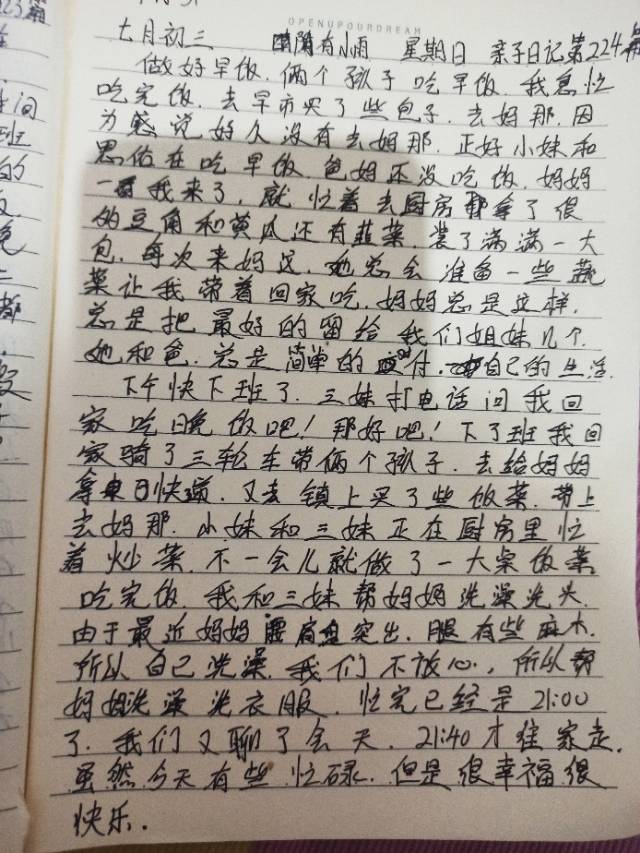 OPENUPOURDREAM
七月初三 阴有小雨 星期日 亲子日记第224篇
做好早饭，俩个孩子吃早饭，我急忙
吃完饭，去早市买了些包子，去妈那，因
为感觉好久没有去妈那，正好小妹和
思佑在吃早饭，爸妈还没吃饭，妈妈
一看我来了，就忙着去厨房拿了很
多的豆角和黄瓜还有韭菜，装了满满一大
包，每次来妈这，她总会准备一些蔬
菜让我带着回家吃，妈妈总是这样，
总是把最好的留给我们姐妹几个，
她和爸，总是简单的应付，自己的生活。
下午快下班了，三妹打电话问我回
家吃晚饭吧！那好吧！下了班我回
家骑了三轮车带俩个孩子，去给妈妈
拿快递，又去镇上买了些饭菜，带上
去妈那，小妹和三妹正在厨房里忙
着炒菜，不一会儿就做了一大桌饭菜。
吃完饭，我和三妹帮妈妈洗澡洗头，
由于最近妈妈腰肩盘突出，腿有些麻木，
所以自己洗澡，我们不放心，所以帮
妈妈洗澡洗衣服，忙完已经是21:00
了，我们又聊了会天，21:40才往家走，
虽然今天有些忙碌，但是很幸福很
快乐．